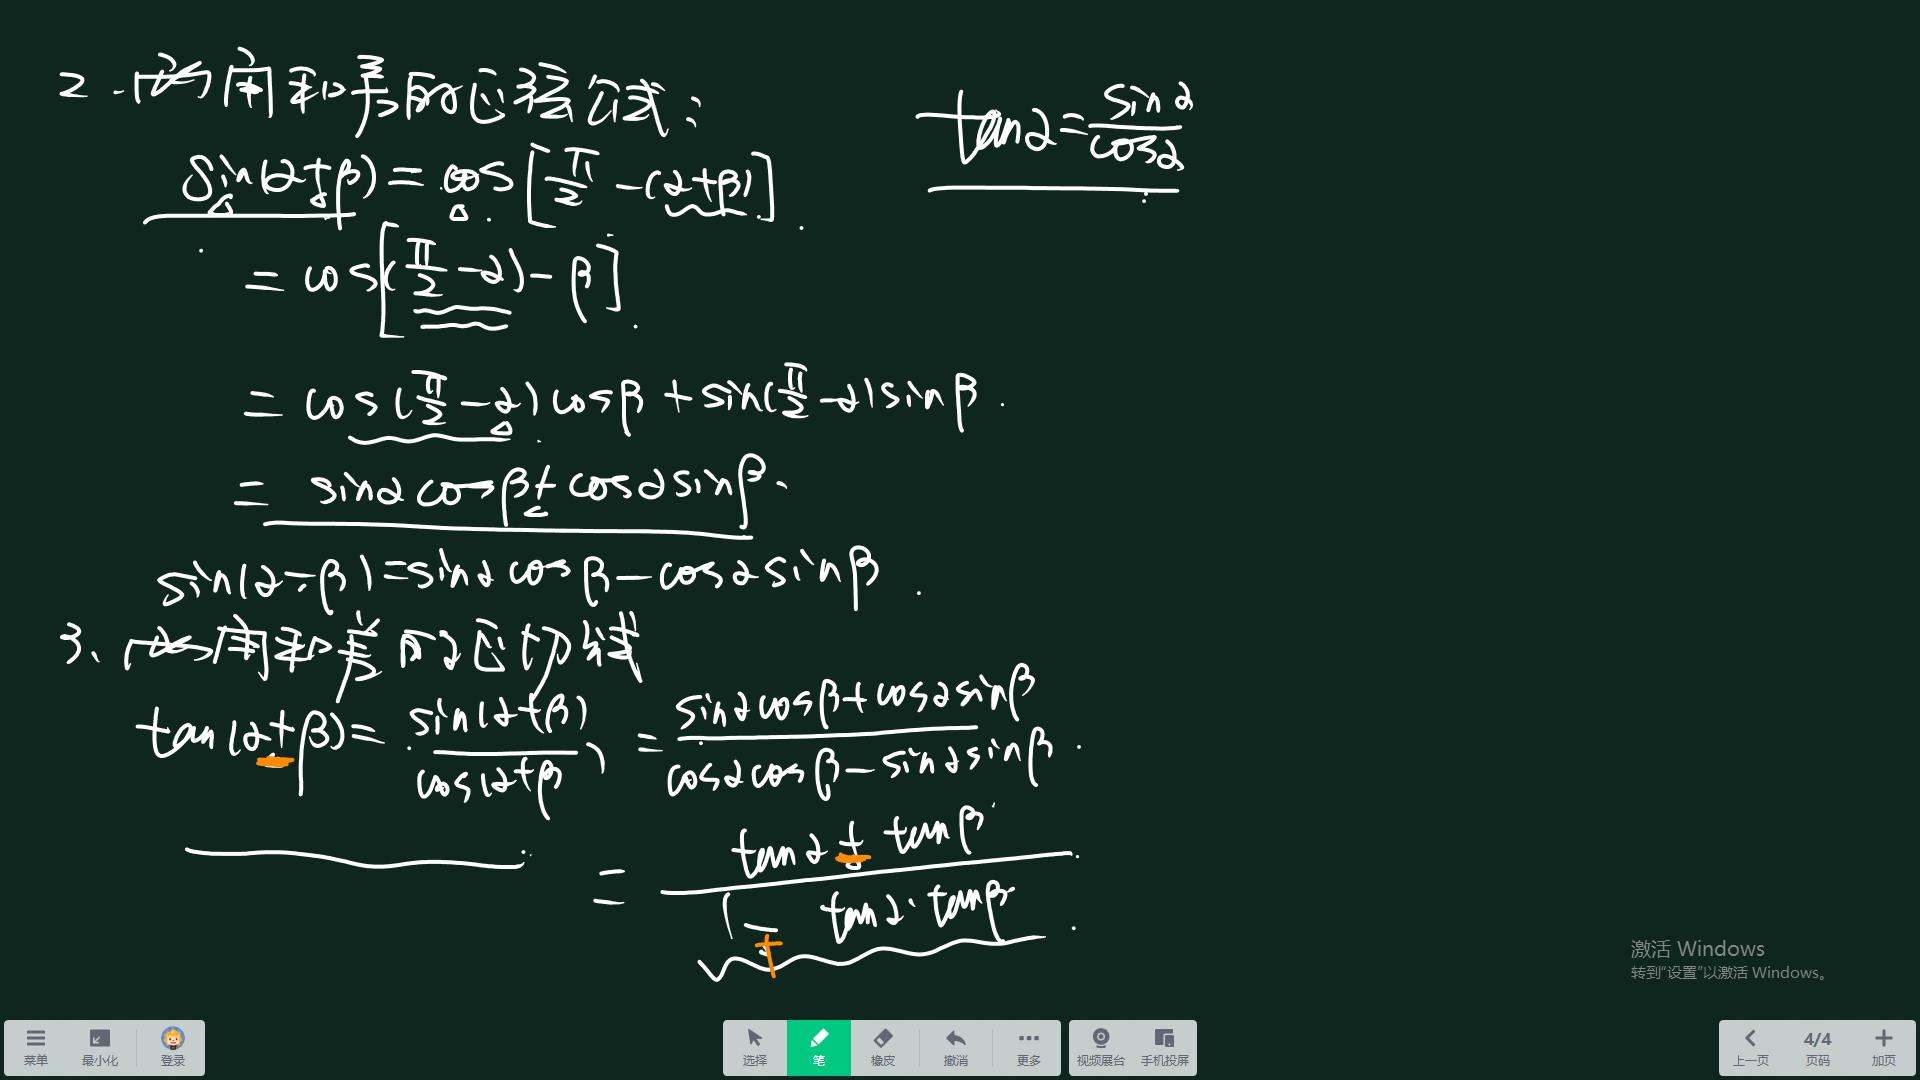 2.两角和差的正弦公式:
tanα=sinα/cosα
sin(α+β)=cos[π/2-(α+β)]
=cos[(π/2-α)-β]
=cos(π/2-α)cosβ+sin(π/2-α)sinβ
=sinαcosβ+cosαsinβ.
sin(α-β)=sinαcosβ-cosαsinβ
3、两角和差的正切
tan(α+β)=sin(α+β)/cos(α+β)=(sinαcosβ+cosαsinβ)/(cosαcosβ-sinαsinβ)
=(tanα+tanβ)/(1-tanα·tanβ)
+
激活 Windows
转到“设置”以激活 Windows。
菜单 最小化 登录 选择 笔 橡皮 撤消 更多 视频展台 手机投屏 上一页 4/4 页码 加页